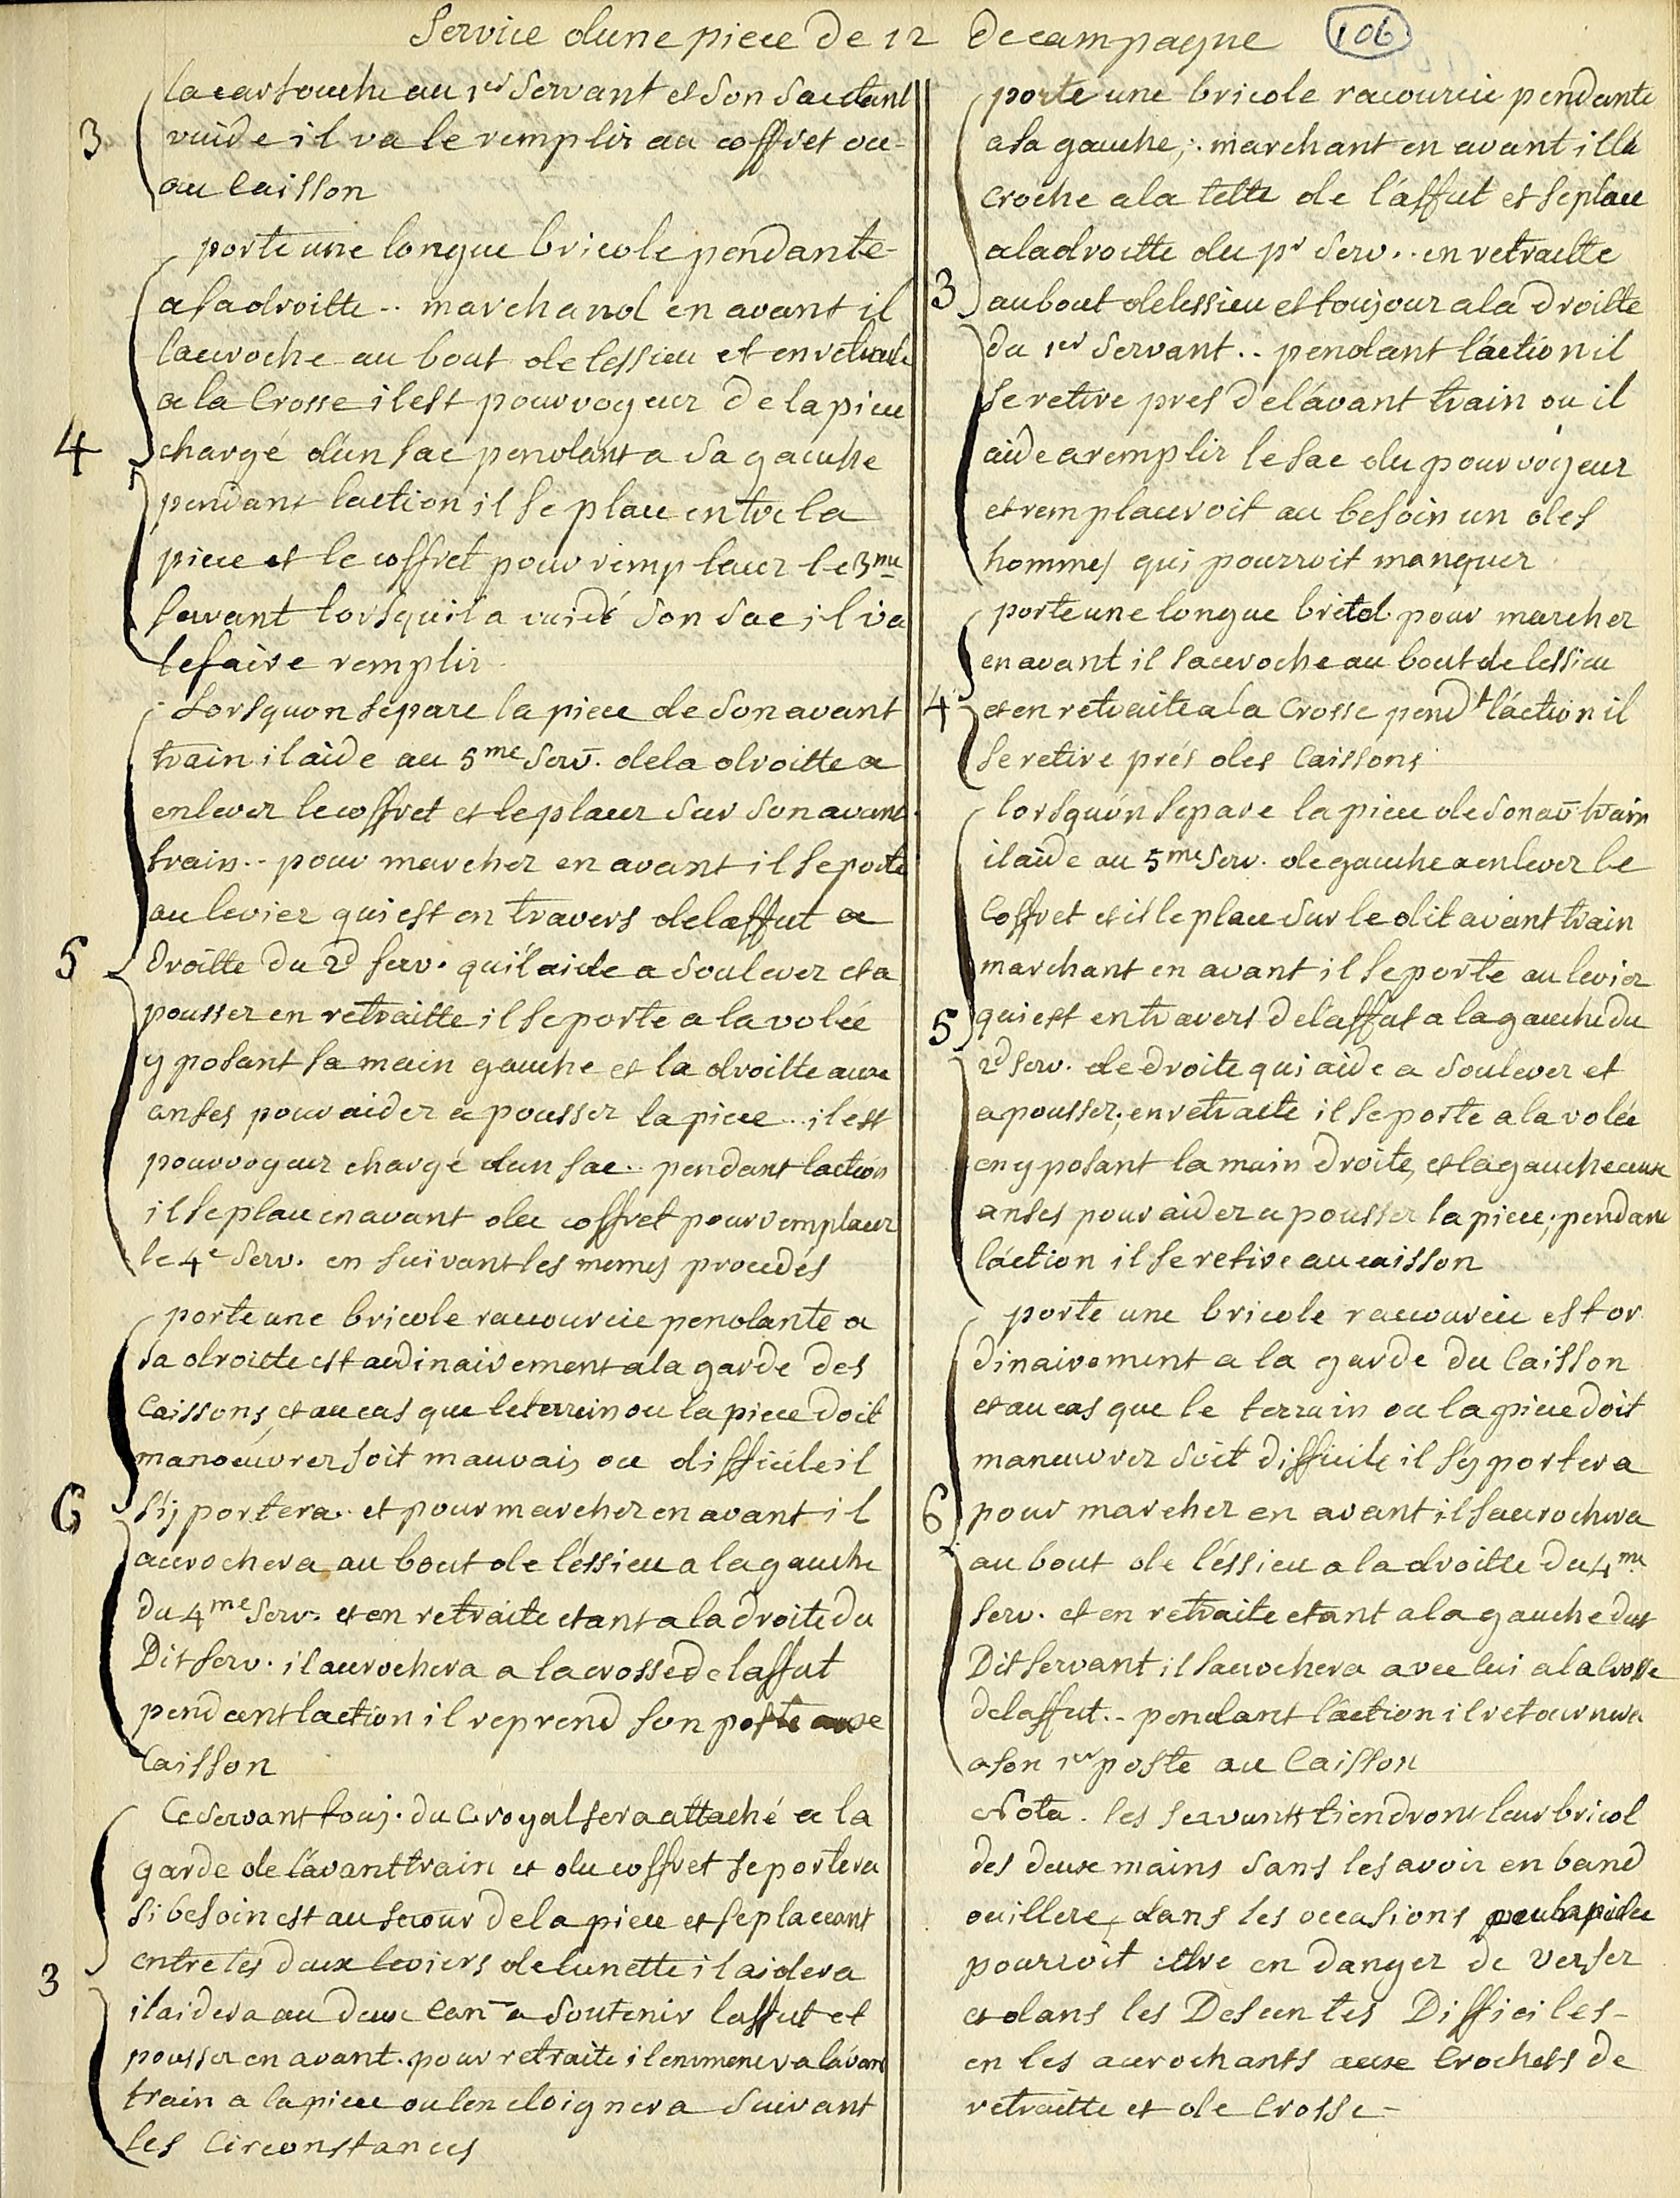 Service dune piece de 12 de campagne
106
la cartouche au 1er Servant et Son Sac etant
3
vuide il va le remplir au coffret ou
au Caisson
porte une longue bricole pendante
a sa droitte .. marchand en avant il
laccroche au bout de lessieu et en retraite
a la Crosse il est pourvoyeur de la piece
4
chargé d'un sac pendant a Sa gauche
pendant laction il se place entre la
piece et le coffret pour remplacer le 3me
servant lorsquil a vuidé Son Sac il va
le faire remplir
Lorsquon separe la piece de Son avant
train il aide au 5me Serv. de la droitte a
enlever le coffret et le placer Sur Son avant
train .. pour marcher en avant il se porte
au levier qui est en travers de laffut a
5
droitte du 2d serv. qu'il aide a Soulever et a
pousser en retraitte il se porte a la volée
y posant sa main gauche et la droitte aux
anses pour aider a pousser la piece .. il est
pourvoyeur chargé dun sac .. pendant laction
il se place en avant du coffret pour remplacer
le 4e Serv. en suivant les memes procedés
porte une bricole raccourcie pendante a
Sa droitte est ardinairement a la garde des
Caissons, et au cas que le terrein ou la piece doit
manoeuvrer soit mauvais ou difficile il
6
s'y portera. et pour marcher en avant il
accrochera au bout de l'éssieu a la gauche
du 4me Serv. et en retraite etant a la droite du
Dit serv. il accrochera a la crosse de laffut
pendant laction il reprend son poste au
Caisson
Ce Servant touj. du C. royal sera attaché a la
garde de l'avant train et du coffret se portera
Si besoin est au secour de la piece et se placeant
entre les deux leviers de lunette il aidera
3
il aidera au deux Can~ a Soutenir laffut et
pousser en avant. pour retraite il enmenera lavant
train a la piece ou len eloignera Suivant
les Circonstances
porte une bricole racourcie pendante
a sa gauche; marchant en avant il l'a
croche a la tette de l'affut et se place
a la droitte du pr Serv .. en retraitte
3
au bout de lessieu et toujour a la droitte
du 1er Servant .. pendant l'action il
se retire pres de l'avant train ou il
aide a remplir le sac du pourvoyeur
et remplaceroit au besoin un des
hommes qui pourroit manquer
porte une longue bretel pour marcher
en avant il saccroche au bout de lessieu
4
et en retraite a la Crosse pendt l'action il
se retire prés des Caissons
lorsqu'on separe la piece de Son av train
il aide au 5me Serv. de gauche a enlever le
Coffret et il le place Sur le dit avant train
marchant en avant il se porte au levier
5
qui est en travers de laffut a la gauche du
2d Serv. de droite qui aide a Soulever et
a pousser; en retraite il se porte a la volée
en y posant la main droite, et la gauche aux
anses pour aider a pousser la piece; pendant
l'action il se retire au caisson
porte une bricole raccourcie est or
dinairement a la garde du Caisson
et au cas que le terrain ou la piece doit
maneuvrer Soit difficile il s'y portera
6
pour marcher en avant il saccrochera
au bout de l'éssieu a la droitte du 4me
serv. et en retraite etant a la gauche dut
Dit servant il saccrochera avec lui a la Crosse
de laffut .. pendant l'action il retournera
a son 1er poste au Caisson
Nota. les servants tiendront leur bricol
des deux mains Sans les avoir en band
ouillere, dans les occasions ou la piece
pourroit ettre en danger de verser
et dans les Descentes Difficiles
en les accrochants aux Crochets de
retraitte et de Crosse